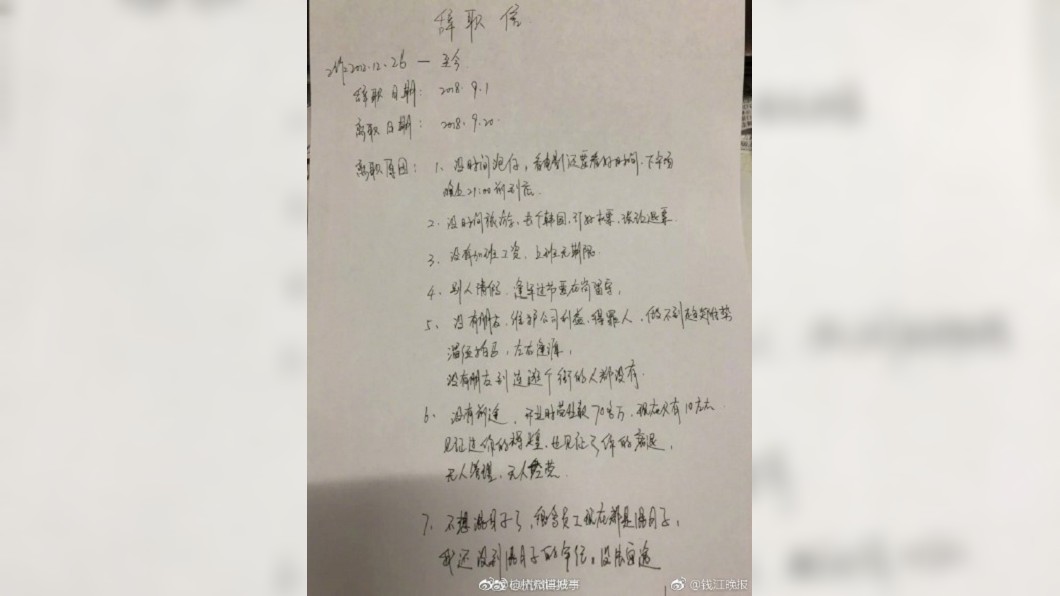 辞职信
工作:2012.12.26 — 至今
辞职日期: 2018.9.1
离职日期: 2018.9.20
离职原因: 1、没时间泡仔,看电影还要看好时间.下午场
晚上21:00前到底.
2、没时间旅游、去个韩国,订好机票,谈论退票.
3、没有加班工资,上班无期限.
4、别人请假,逢年过节要在岗留守,
5、没有朋友,维护公司利益,得罪人,做不到趋炎附势
溜须拍马,左右逢源,
没有朋友到连逛个街的人都没有.
6、没有前途,开业时营业额70多万,现在只有10左右
见证过你的辉煌,也见证了你的衰退,
无人管理,无人经营.
7、不想混日子了,宿舍员工现在都是混日子,
我还没到混日子的年纪。没法自逸
@杭州得城事
@钱江晚报